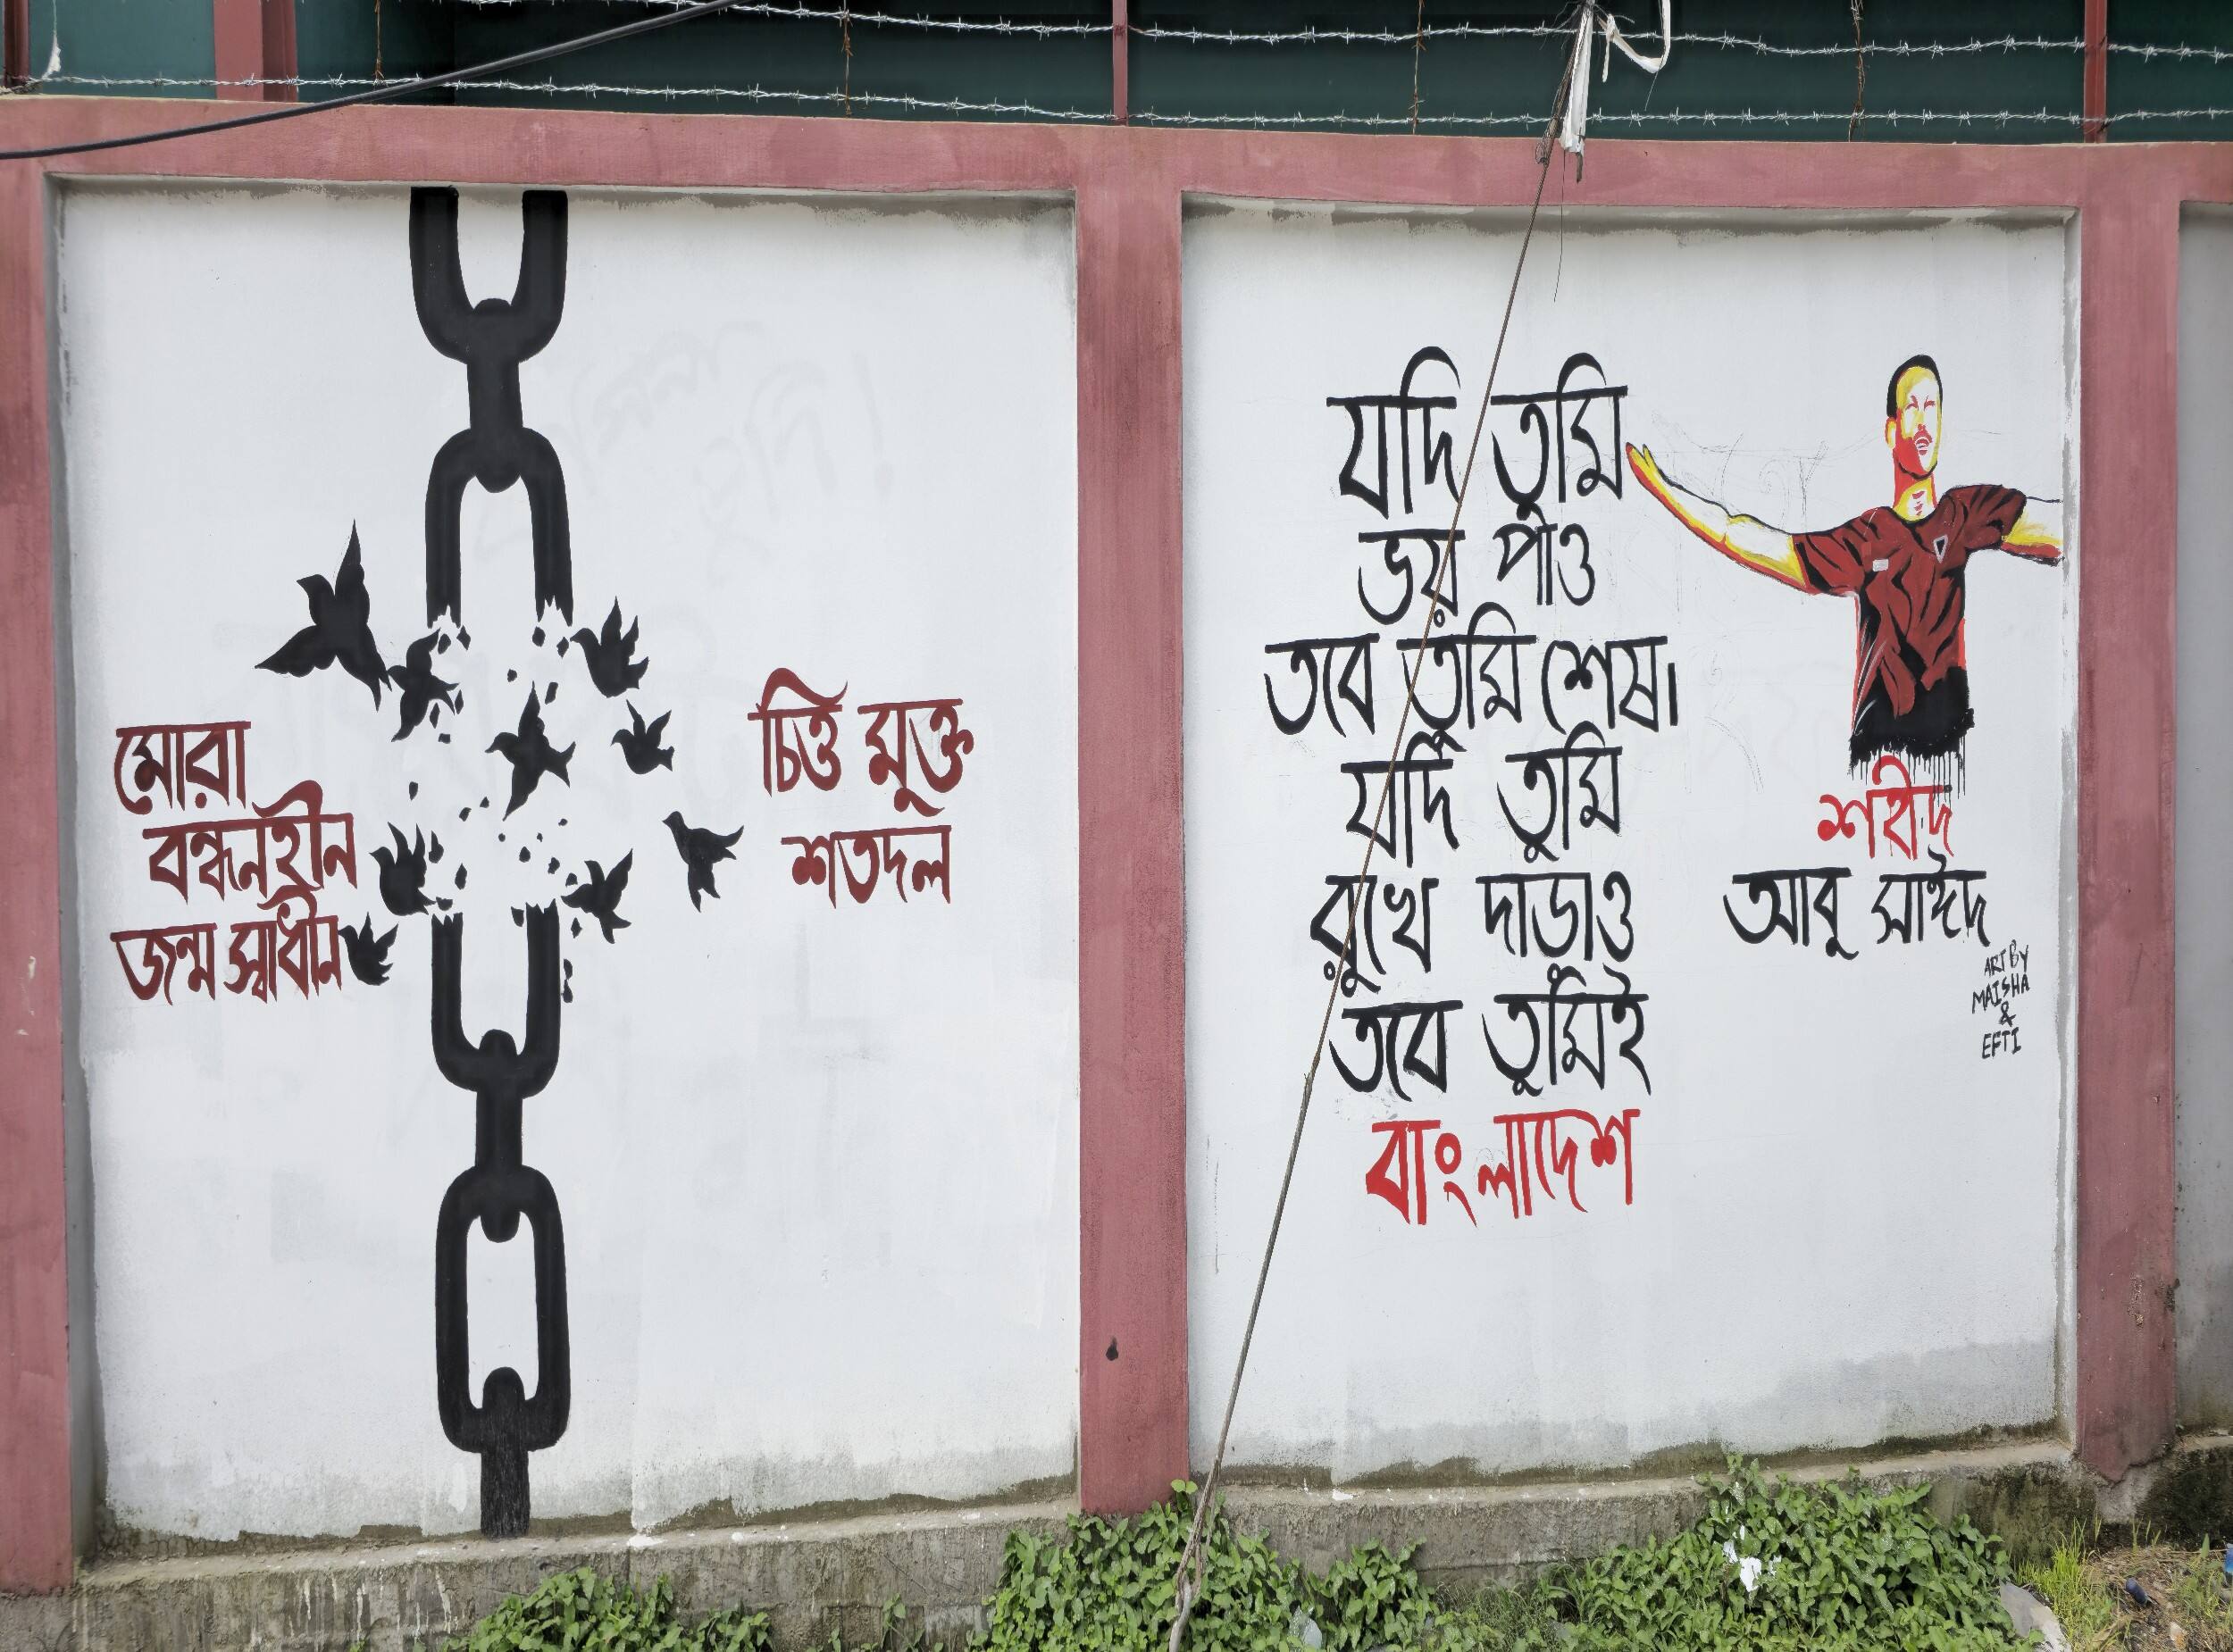 মোরা
বন্ধনহীন
জন্ম স্বাধীন
চিত্ত মুক্ত
শতদল
যদি তুমি
ভয় পাও
তবে তুমি শেষ।
যদি তুমি
রুখে দাড়াও
তবে তুমিই
বাংলাদেশ
শহীদ
আবু সাঈদ
ART BY
MAISHA
&
EFTI